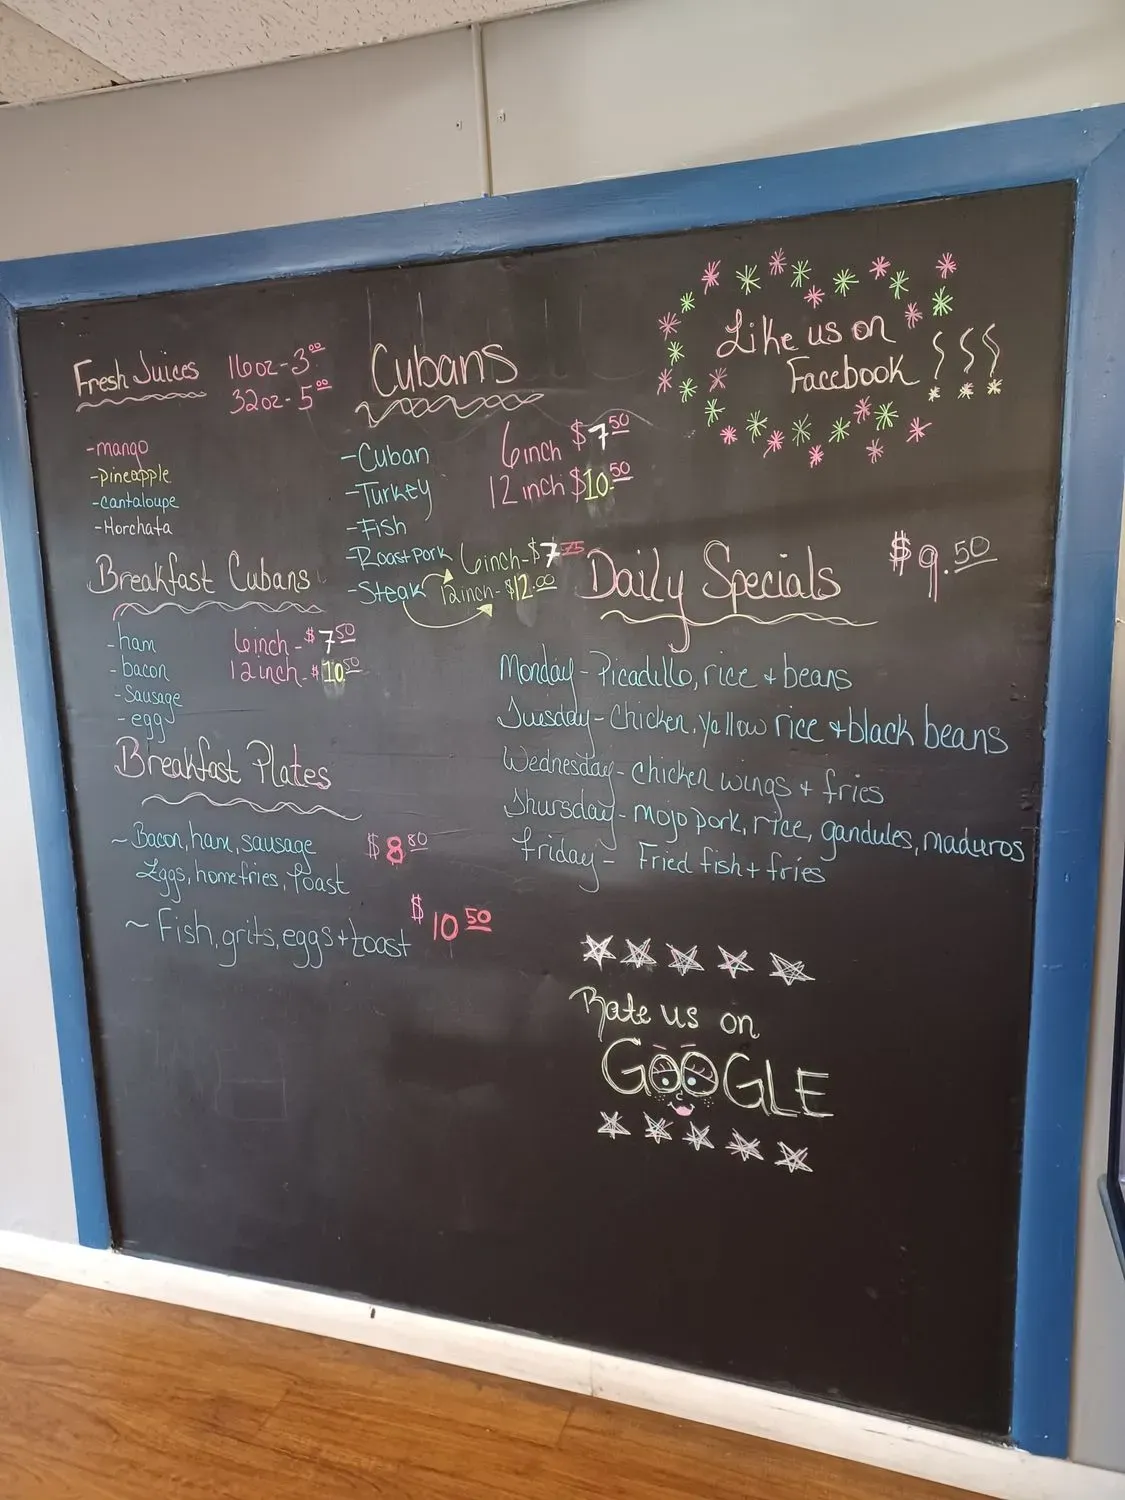 Fresh Juices
16oz - 3.00
32oz - 5.00
-mango
-pineapple
-cantaloupe
-Horchata
Breakfast Cubans
-ham
-bacon
-Sausage
-egg
6inch - $7.50
12inch - $10.50
Breakfast Plates
~ Bacon, ham, sausage $8.80
Eggs, homefries, Toast
~ Fish, grits, eggs + toast $10.50
Cubans
-Cuban
-Turkey
-Fish
-Roast pork
-Steak
6inch $7.50
12 inch $10.50
6inch - $7.75
12inch - $12.00
Like us on
Facebook
Daily Specials $9.50
Monday - Picadillo, rice + beans
Tuesday - Chicken, yellow rice + black beans
Wednesday - chicken wings + fries
Thursday - mojo pork, rice, gandules, maduros
Friday - Fried fish + fries
Rate us on
GOOGLE